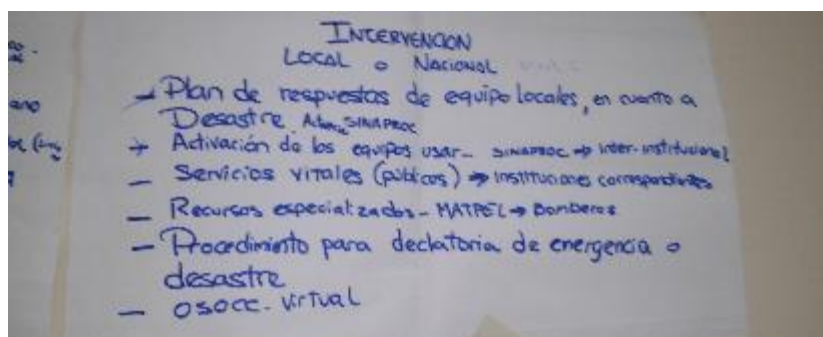 INTERVENCION
LOCAL o NACIONAL
- Plan de respuestas de equipo locales, en cuanto a
Desastre SINAPROC
+ Activación de los equipos usar - SINAPROC → inter-institucional
- Servicios vitales (públicos) → instituciones correspondientes
- Recursos especializados - MATPEL → Bomberos
- Procedimiento para declatoria de emergencia o
desastre
- OSOCC. virtual
ano